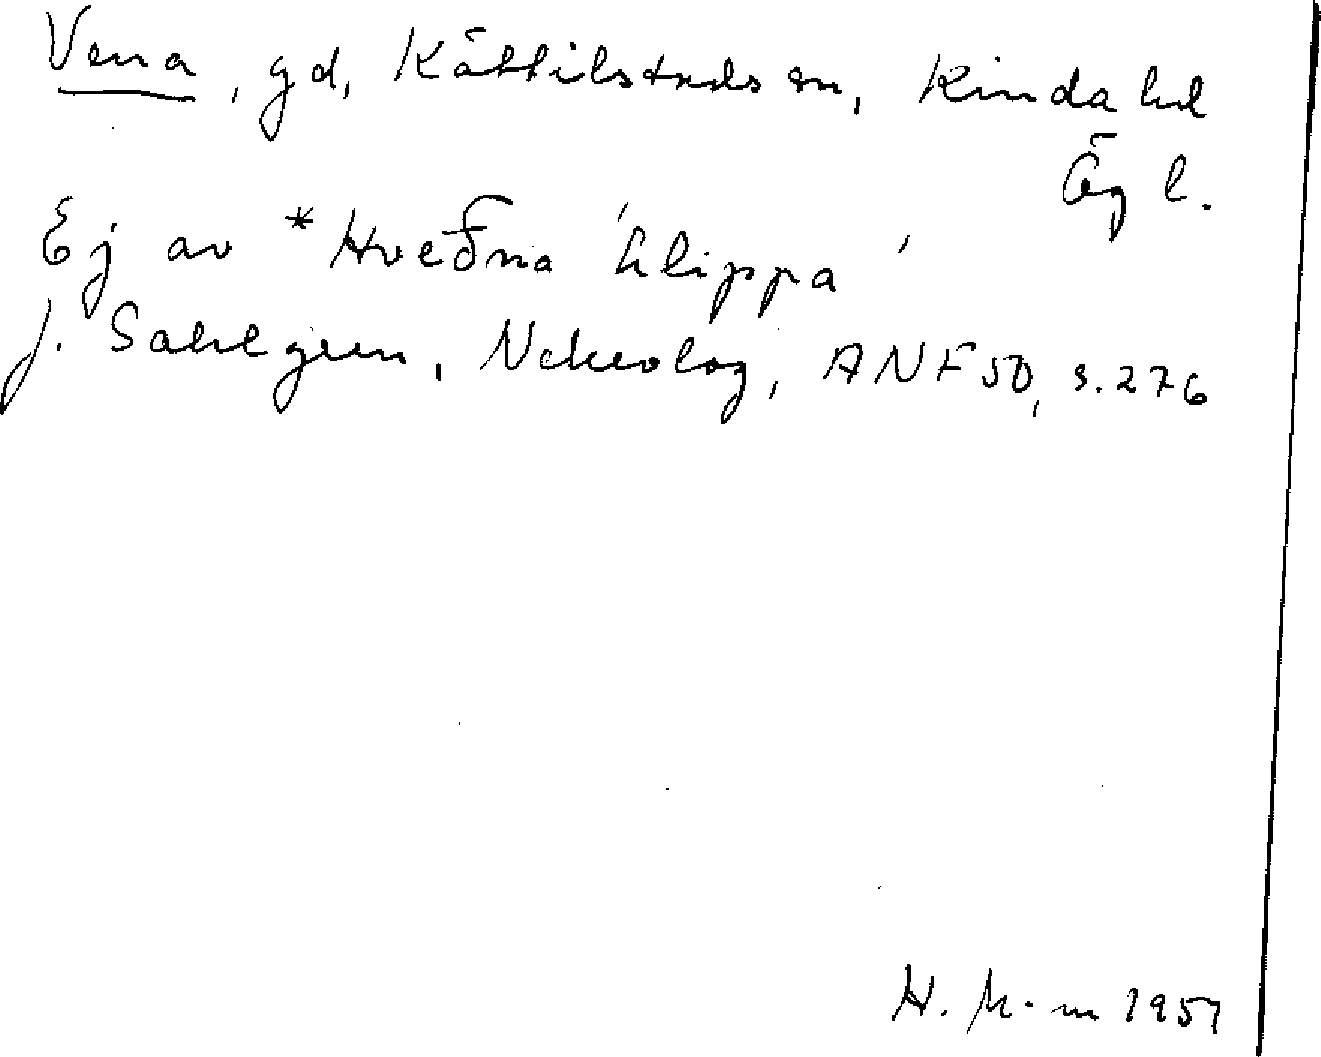 Vena, gd, Kättilstads sn, Kinda hd
Ög l.
Ej av *Hveðna 'klippa'
J. Sahlgren, Nekrolog, ANF 50, s. 276
H. K-m 1957